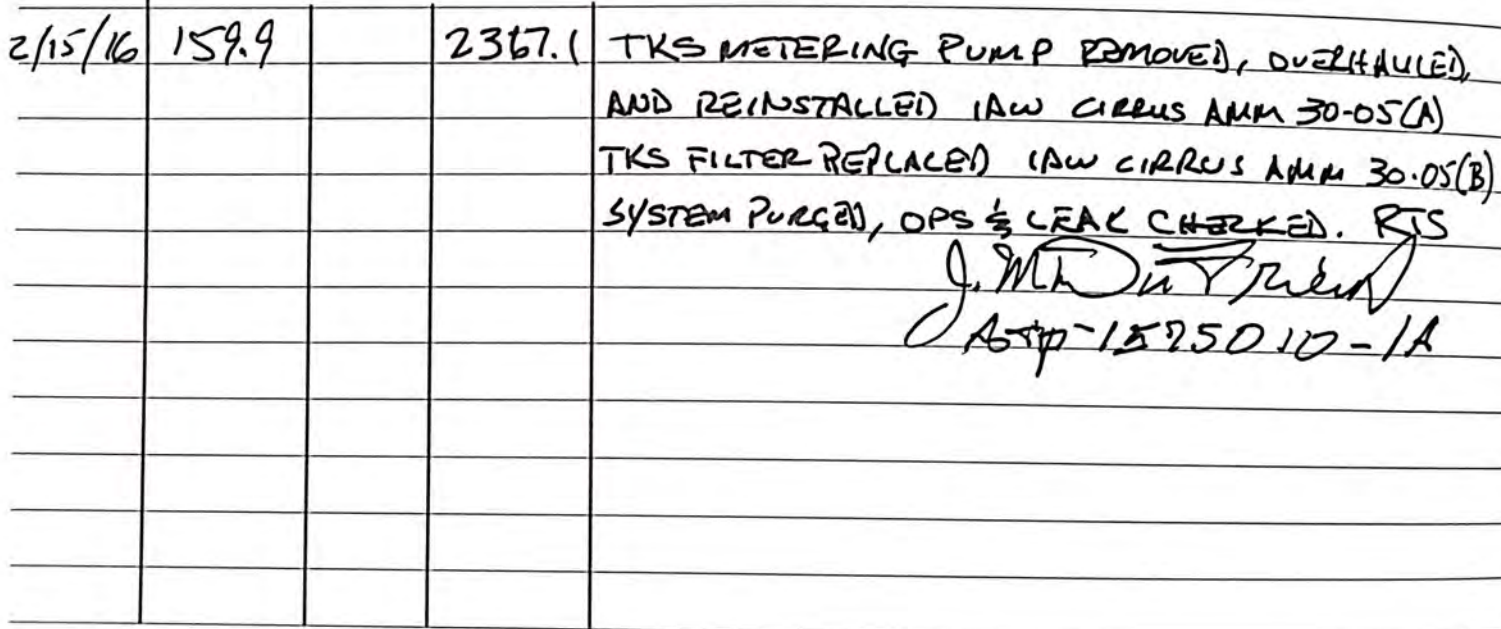 2/15/16 159.9 2367.1 TKS METERING PUMP REMOVED, OVERHAULED,
AND REINSTALLED IAW CIRRUS AMM 30-05(A)
TKS FILTER REPLACED IAW CIRRUS AMM 30.05(B)
SYSTEM PURGED, OPS & LEAK CHECKED. RTS
J.